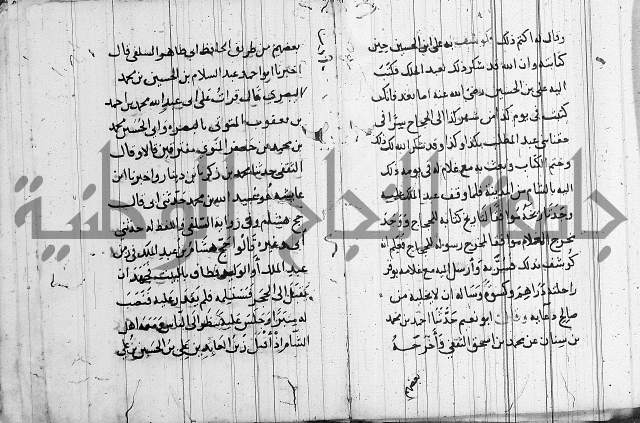 وقال له اكتم ذلك وكوشف به علي ابن الحسين حين
كتابته وان الله قد شكر ذلك لعبد الملك فكتب
اليه علي بن الحسين رضي الله عنه اما بعد فانك
كتبت في يوم كذا من شهر كذا الى الحجاج سرا في
حقنا بني عبد المطلب بكذا وكذا وقد شكر الله لك ذلك
وختم الكتاب وبعث به مع غلام له في يومه ذلك
اليه بالشام من المدينة فلما وقف عبد الملك عليه
وجد تاريخه موافقا لتاريخ كتابه للحجاج ووجد
مخرج الغلام موافقا لمخرج رسوله للحجاج فعلم انه
كوشف بذلك فسر به وارسل اليه مع غلامه بوقر
راحلته دراهم وكسوة وساله ان لا يخليه من
صالح دعائه ابو نعيم حدثنا احمد بن محمد
بن سنان عن محمد بن اسحق الثقفي واخرجه
بعضهم
بعضهم من طريق الحافظ ابي طاهر السلفي قال
اخبرنا ابو احمد عبد السلام بن الحسين بن محمد
البصري قال قرات على ابي عبد الله محمد بن احمد
بن يعقوب المتوثي بالبصرة وابي الحسين محمد
بن محمد بن جعفر اللغوي متفرقين قالا وقال
الثقفي حدثنا محمد بن زكريا بن دينار واخبرنا ابن
عايشة هو عبيد الله بن محمد حدثني ابي قال
حج هشام وفي رواية السلفي واللفظ له حدثني
ابي وغيره قالوا حج هشام بن عبد الملك في زمن
عبد الملك او الوليد فطاف بالبيت فجهد ان
يصل الى الحجر فيستلمه فلم يقدر عليه فنصب
له منبرا وجلس عليه ينظر الى الناس ومعه اهل
الشام اذ اقبل زين العابدين علي بن الحسين بن علي
جامعة النجاح الوطنية